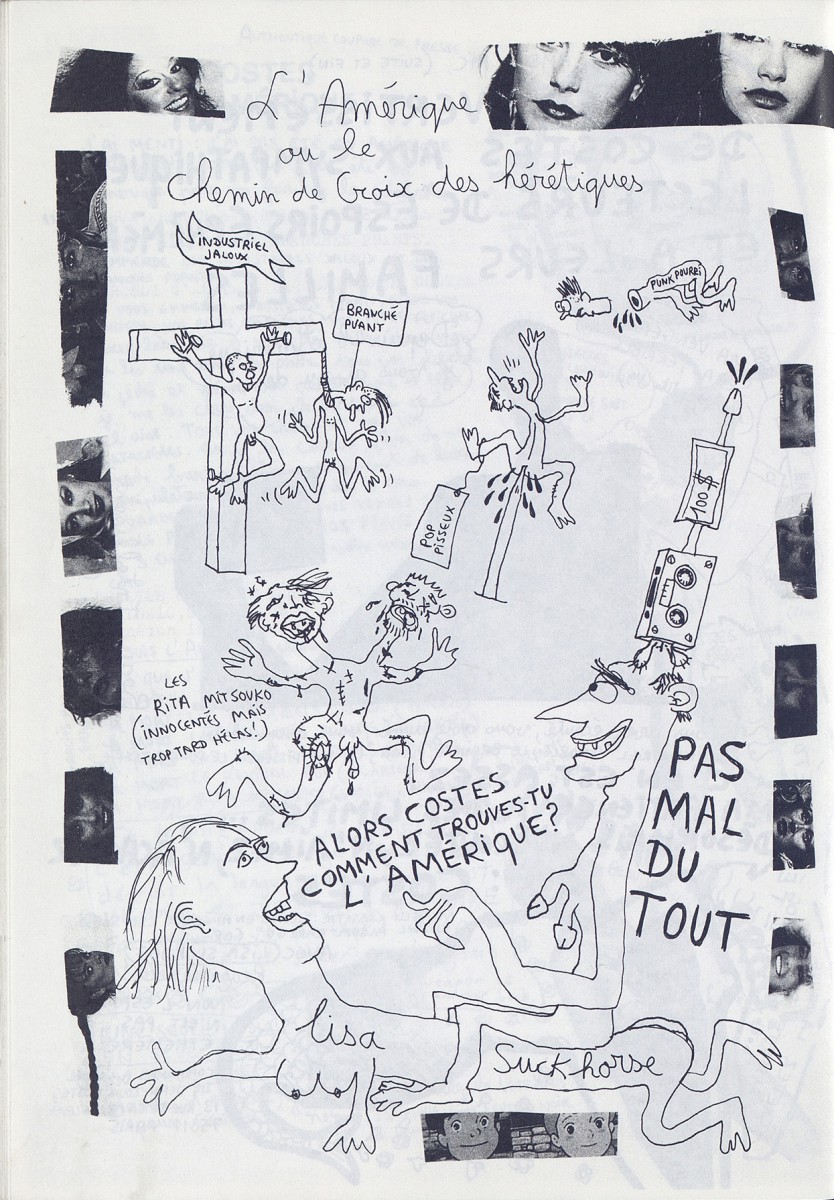 L'Amérique
ou le
Chemin de Croix des hérétiques
INDUSTRIEL
JALOUX
BRANCHÉ
PUANT
PUNK POURRI
POP
PISSEUX
100 $
LES
RITA MITSOUKO
(INNOCENTÉS MAIS
TROP TARD HÉLAS!)
ALORS COSTES
COMMENT TROUVES-TU
L'AMÉRIQUE?
PAS
MAL
DU
TOUT
lisa
Suckhorse